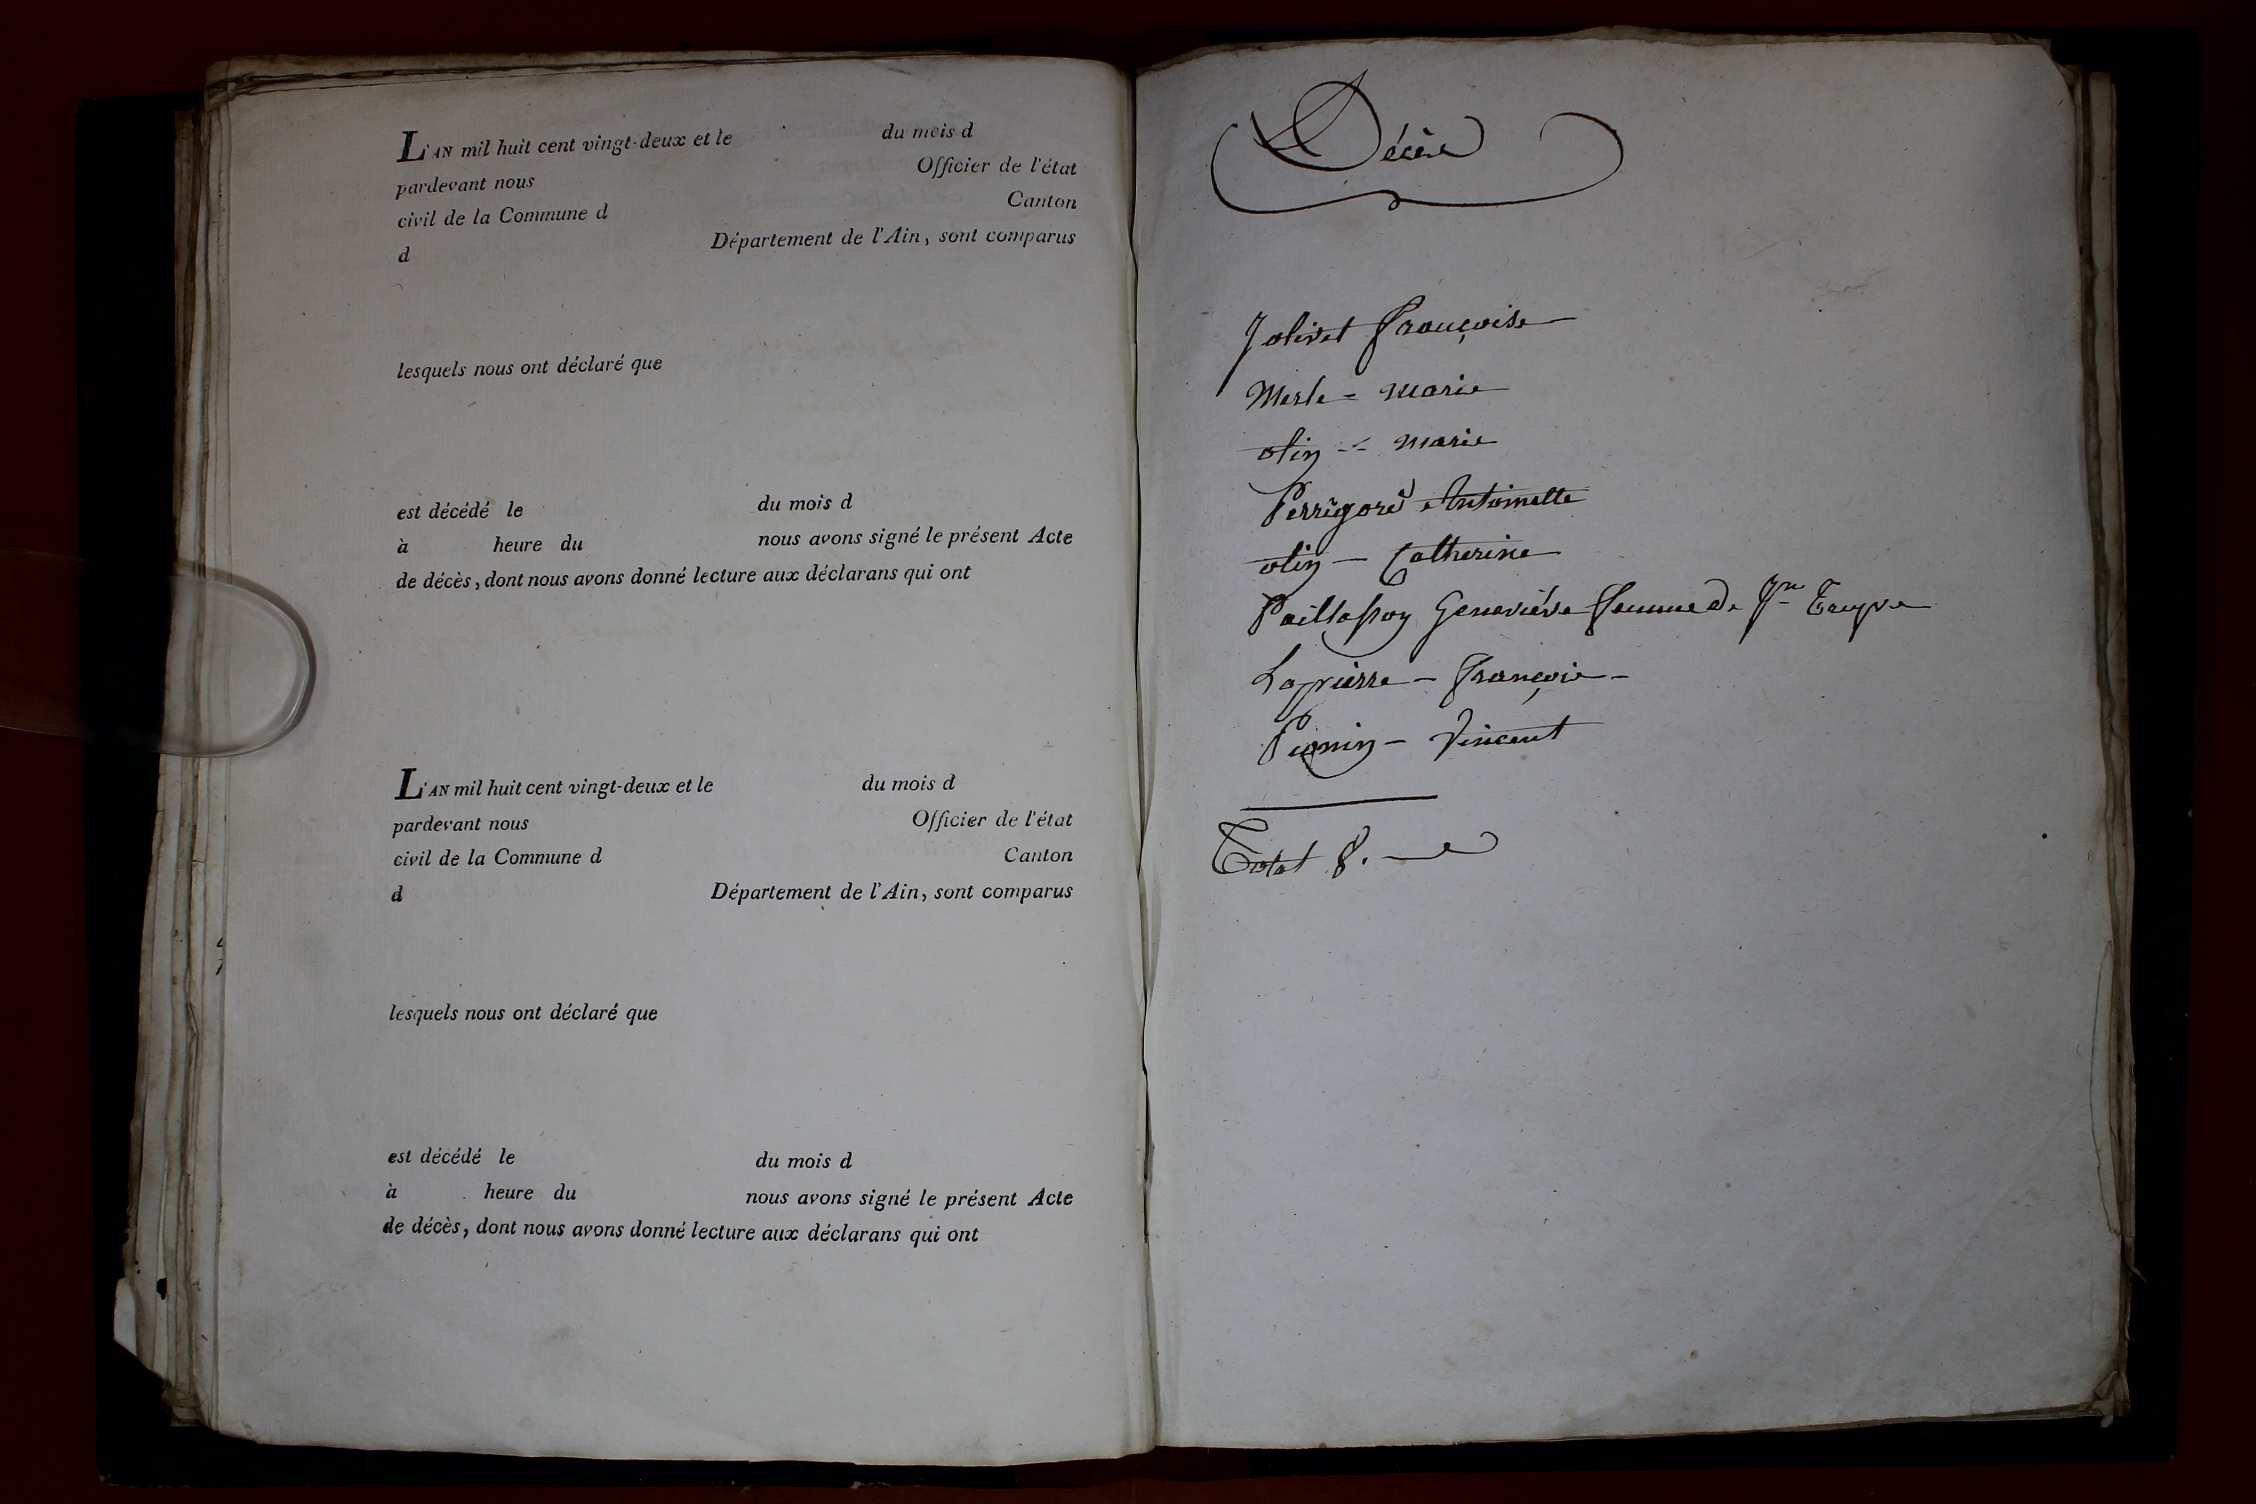 L'AN mil huit cent vingt-deux et le du mois d
pardevant nous Officier de l'état
civil de la Commune d Canton
d Département de l'Ain, sont comparus
lesquels nous ont déclaré que
est décédé le du mois d
à heure du nous avons signé le présent Acte
de décès, dont nous avons donné lecture aux déclarans qui ont
L'AN mil huit cent vingt-deux et le du mois d
pardevant nous Officier de l'état
civil de la Commune d Canton
d Département de l'Ain, sont comparus
lesquels nous ont déclaré que
est décédé le du mois d
à heure du nous avons signé le présent Acte
de décès, dont nous avons donné lecture aux déclarans qui ont
Décès
Jolivet Françoise
Merle = marie
olin = marie
Perrigord Antoinette
olin — Catherine
Paillasson Geneviève femme de Jn
Lapierre — François
Vincent
Total 8.